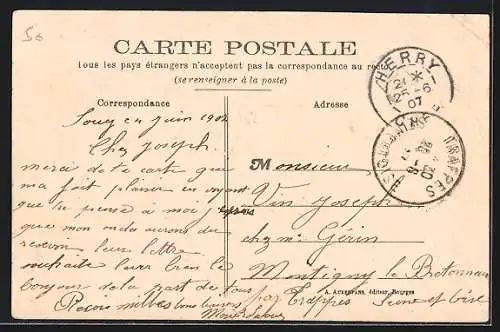 50
CARTE POSTALE
Tous les pays étrangers n'acceptent pas la correspondance au recto
(se renseigner à la poste)
Correspondance
Adresse
HERRY
21 *
25 - 6
07
TRAPPES
juin 1907
Cher Joseph.
merci de ta carte qui
m'a fait plaisir en voyant
que tu pense à moi
que mon oncle
reçevra leur lettre
souhaite leur bien le
bonjour de la part de tous
Reçois milles
Monsieur
Vin Joseph
chez Mr Gérin
Montigny le Bretonneux
par Trappes Seine et Oise
A. Auxenfans, éditeur, Bourges